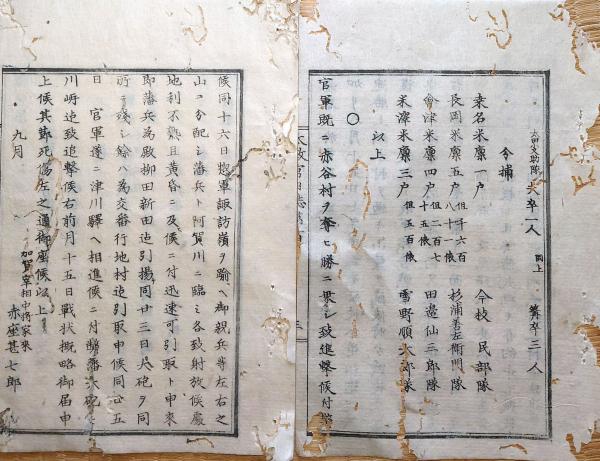 太田文助隊 夫卒一人 同上 算卒三人
今捕
桑名米廩一戸 今枝民部隊
長岡米廩五戸 但千六百八十一俵 杉浦善左衛門隊
會津米廩四戸 但二百七十五俵 田邊仙三郎隊
米澤米廩三戸 但五百俵 雪野順太郎隊
以上
○
官軍既ニ赤谷村ヲ奪ヒ勝ニ乗シ致進撃候付
太政官日誌
三
候同十六日惣軍諏訪嶺ヲ踰ヘ御親兵等左右之
山ニ分配シ藩兵ト阿賀川ニ臨ミ各致射放候處
地利不熟且黄昏ニ及候ニ付迅速可引取ト申來
即藩兵為殿柳田新田迠引揚同廿三日大砲ヲ同
所ヘ残シ餘ハ為交番行地村迠引取申候同廿五
日 官軍遂ニ津川驛ヘ相進候ニ付弊藩大砲
川呼迠致追撃候右前月十五日戰状概略御届申
上候其節死傷左之通御座候以上
九月 加賀宰相中将家來
赤座甚七郎